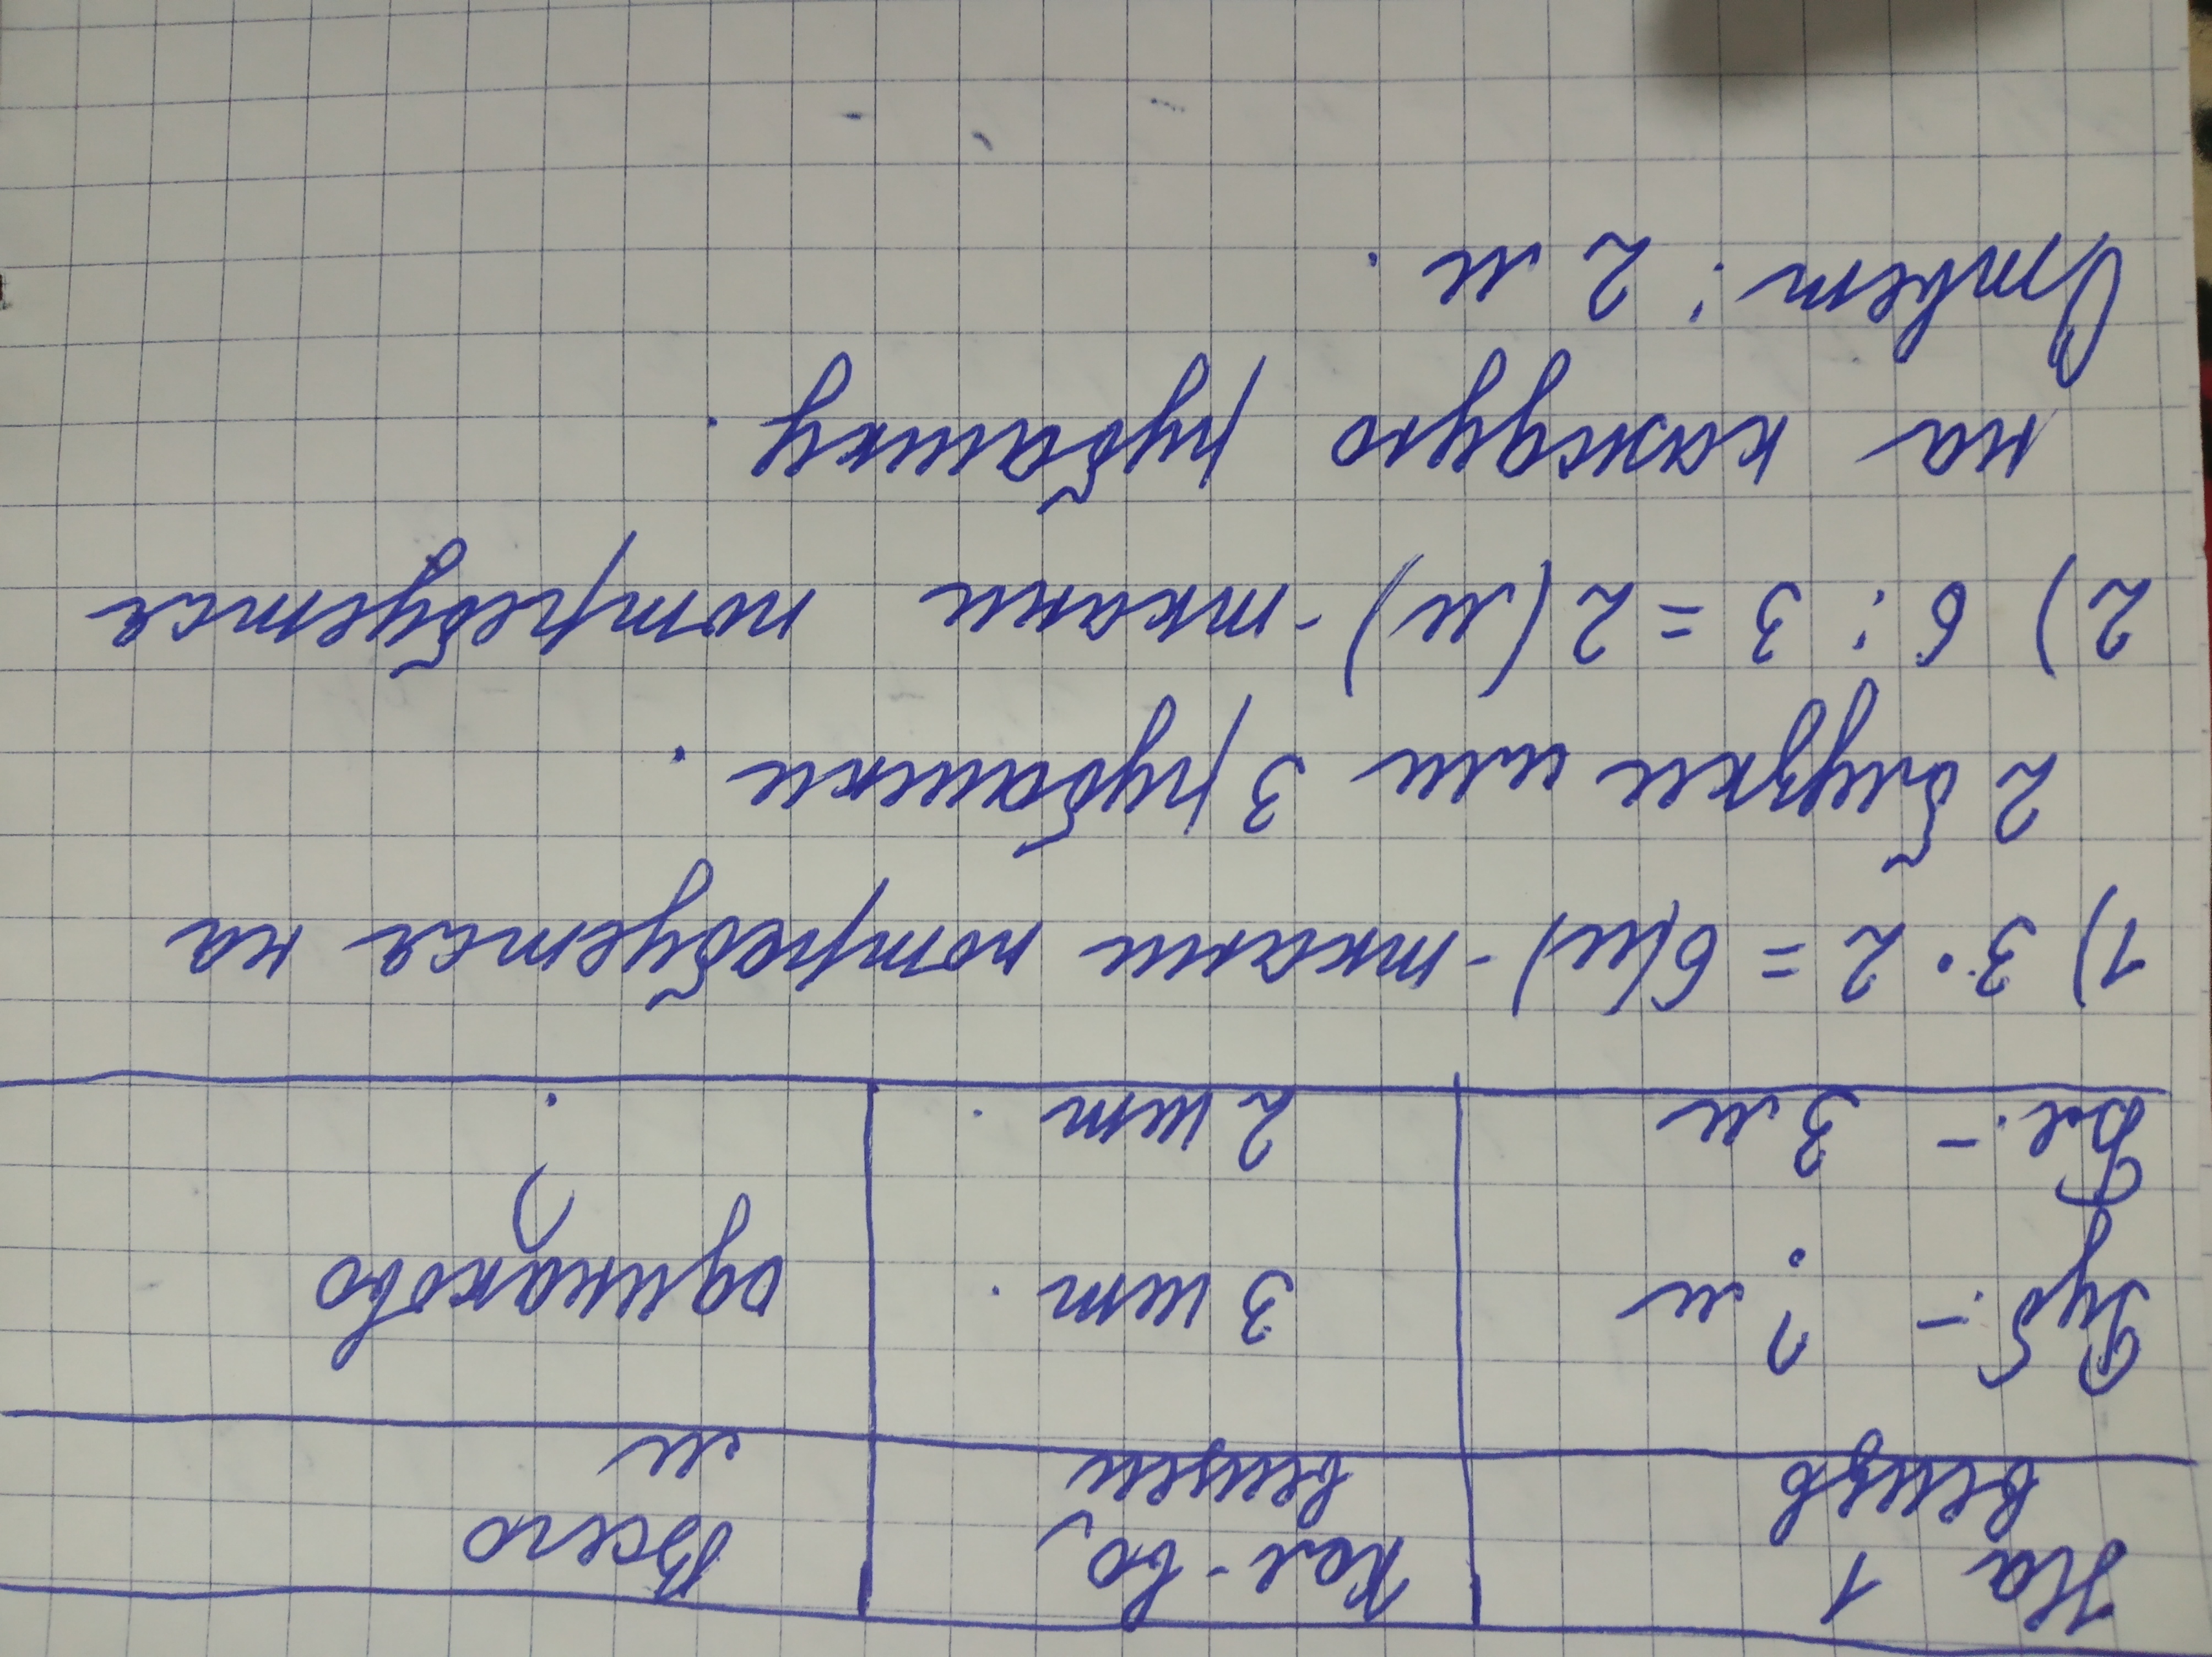 На 1 вещь | Кол-во, вещей | Всего м
Руб.- ? м | 3 шт. | одинаково
Бл.- 3 м | 2 шт. | ?
1) 3·2=6(м)-ткани потребуется на
2 блузки или 3 рубашки.
2) 6:3=2(м)-ткани потребуется
на каждую рубашку.
Ответ: 2 м.